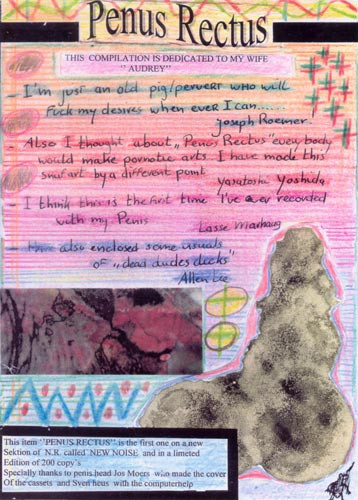 Penus Rectus
THIS COMPILATION IS DEDICATED TO MY WIFE
" AUDREY"
- I'm just an old pig/pervert who will
fuck my desires when ever I can......
Joseph Roemer!
- Also I thought about "Penus Rectus" every body
would make pornotic arts I have made this
snuf art by a different point
Yasutoshi Yoshida
- I think this is the first time I've ever recorded
with my Penis
Lasse Marhaug
- Have also enclosed some visuals
of "dead dudes decks"
Allen Lee
This item "PENUS RECTUS" is the first one on a new
Sektion of N.R. called NEW NOISE and in a limeted
Edition of 200 copy's
Specially thanks to penis.head Jos Moers who made the cover
Of the cassets and Sven heus with the computerhelp